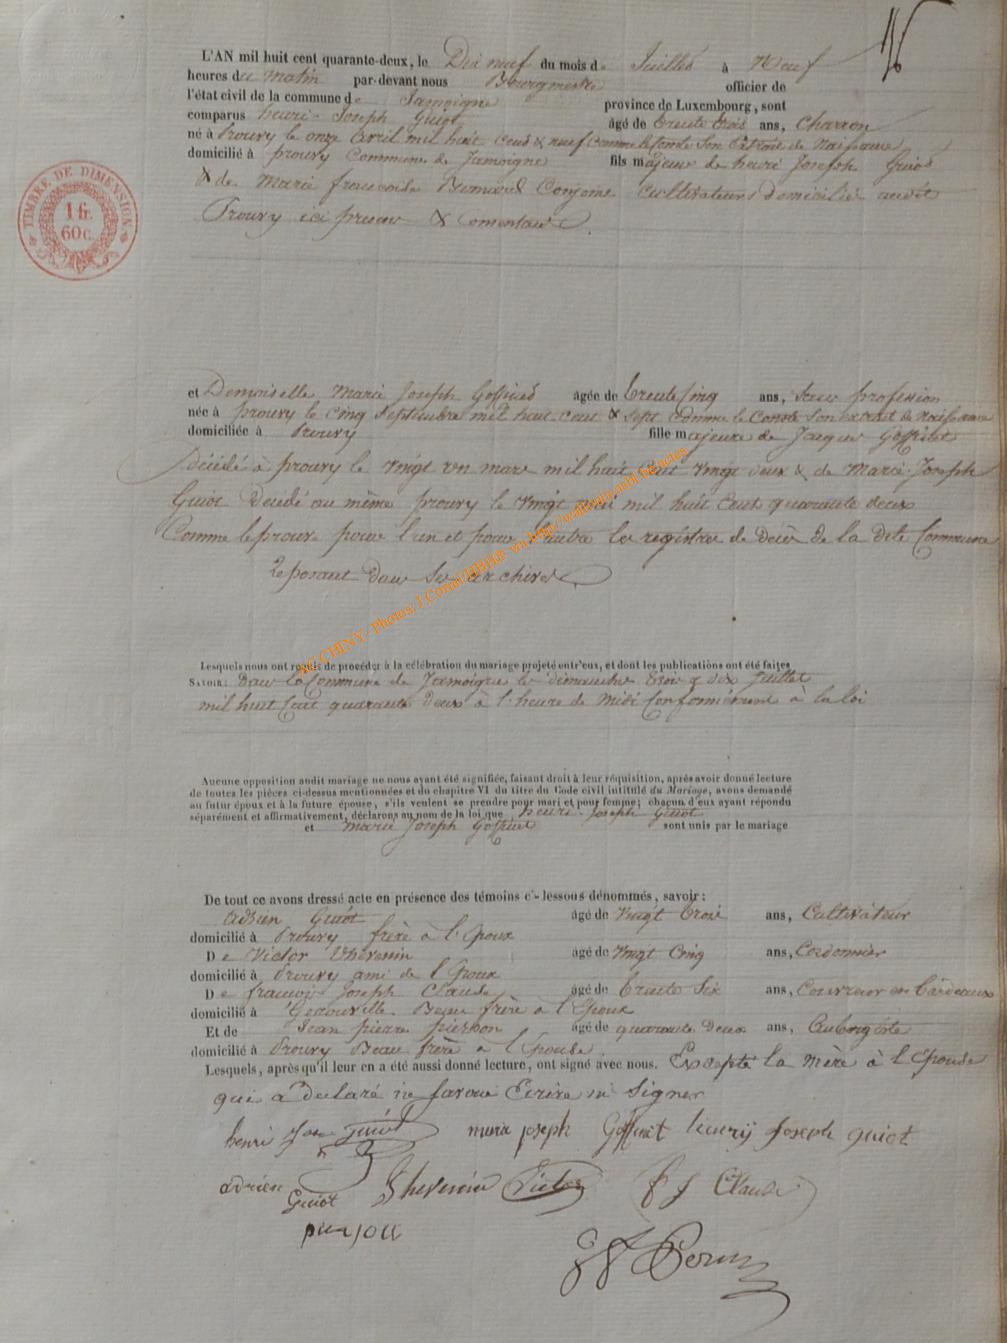 L'AN mil huit cent quarante-deux, le Dix neuf du mois de Juillet à Neuf
heures du matin par-devant nous Bourgmestre officier de
l'état civil de la commune de Jamoigne province de Luxembourg, sont
comparus henri-Joseph Guiot âgé de trente trois ans, Charron
né à Prouvy le onze avril mil huit cent & neuf comme le son Extrait de Naissance
domicilié à prouvy Commune de Jamoigne fils majeur de henri Joseph Guiot
& de Marie francoise Conjoins Cultivateurs Domiciliés audit
Prouvy ici present & consentant
TIMBRE DE DIMENSION
1 fr.
60 c.
et Demoiselle Marie Joseph Goffinet âgée de trente cinq ans, sans profession
née à prouvy le cinq septembre mil huit cent & sept comme le Conste son extrait de Naissance
domiciliée à Prouvy fille majeure de Jacques Goffinet
décédé à prouvy le vingt un mars mil huit cent vingt deux & de Marie-Joseph
Guiot Décédé au même prouvy le vingt mil huit cent quarante deux
Comme le prouve pour l'un et pour l'autre les registres de Décès de la dite Commune
Reposant dans ses archives
Lesquels nous ont requis de procéder à la célébration du mariage projeté entr'eux, et dont les publications ont été faites
SAVOIR: Dans la Commune de Jamoigne les dimanches trois & dix Juillet
mil huit Cent quarante Deux à l'heure de Midi Conformément à la loi
Aucune opposition audit mariage ne nous ayant été signifiée, faisant droit à leur réquisition, après avoir donné lecture
de toutes les pièces ci-dessus mentionnées et du chapitre VI du titre du Code civil intitulé du Mariage, avons demandé
au futur époux et à la future épouse, s'ils veulent se prendre pour mari et pour femme; chacun d'eux ayant répondu
séparément et affirmativement, déclarons au nom de la loi que henri-Joseph Guiot
et marie Joseph Goffinet sont unis par le mariage
De tout ce avons dressé acte en présence des témoins ci-dessous dénommés, savoir:
Adrien Guiot âgé de vingt trois ans, Cultivateur
domicilié à Prouvy frère à l'Epoux
De Victor Thévenin âgé de vingt Cinq ans, Cordonnier
domicilié à Prouvy ami de l'Epoux
De francois Joseph Claude âgé de trente six ans, Couvreur en Bardeaux
domicilié à Gérouville Beau frère à l'Epoux
Et de Jean pierre pierson âgé de quarante Deux ans,
domicilié à Prouvy Beau frère à l'Epouse
Lesquels, après qu'il leur en a été aussi donné lecture, ont signé avec nous. Excepté la mère à l'Epoude
qui a déclaré ne savoir Ecrire ni signer
henri Jos Guiot maria joseph Goffinet henrÿ Joseph guiot
adrien Guiot Thevenin Victor f J Claude
pierson
ACCHINY - Photos/1 Comm/HBIKE via http://